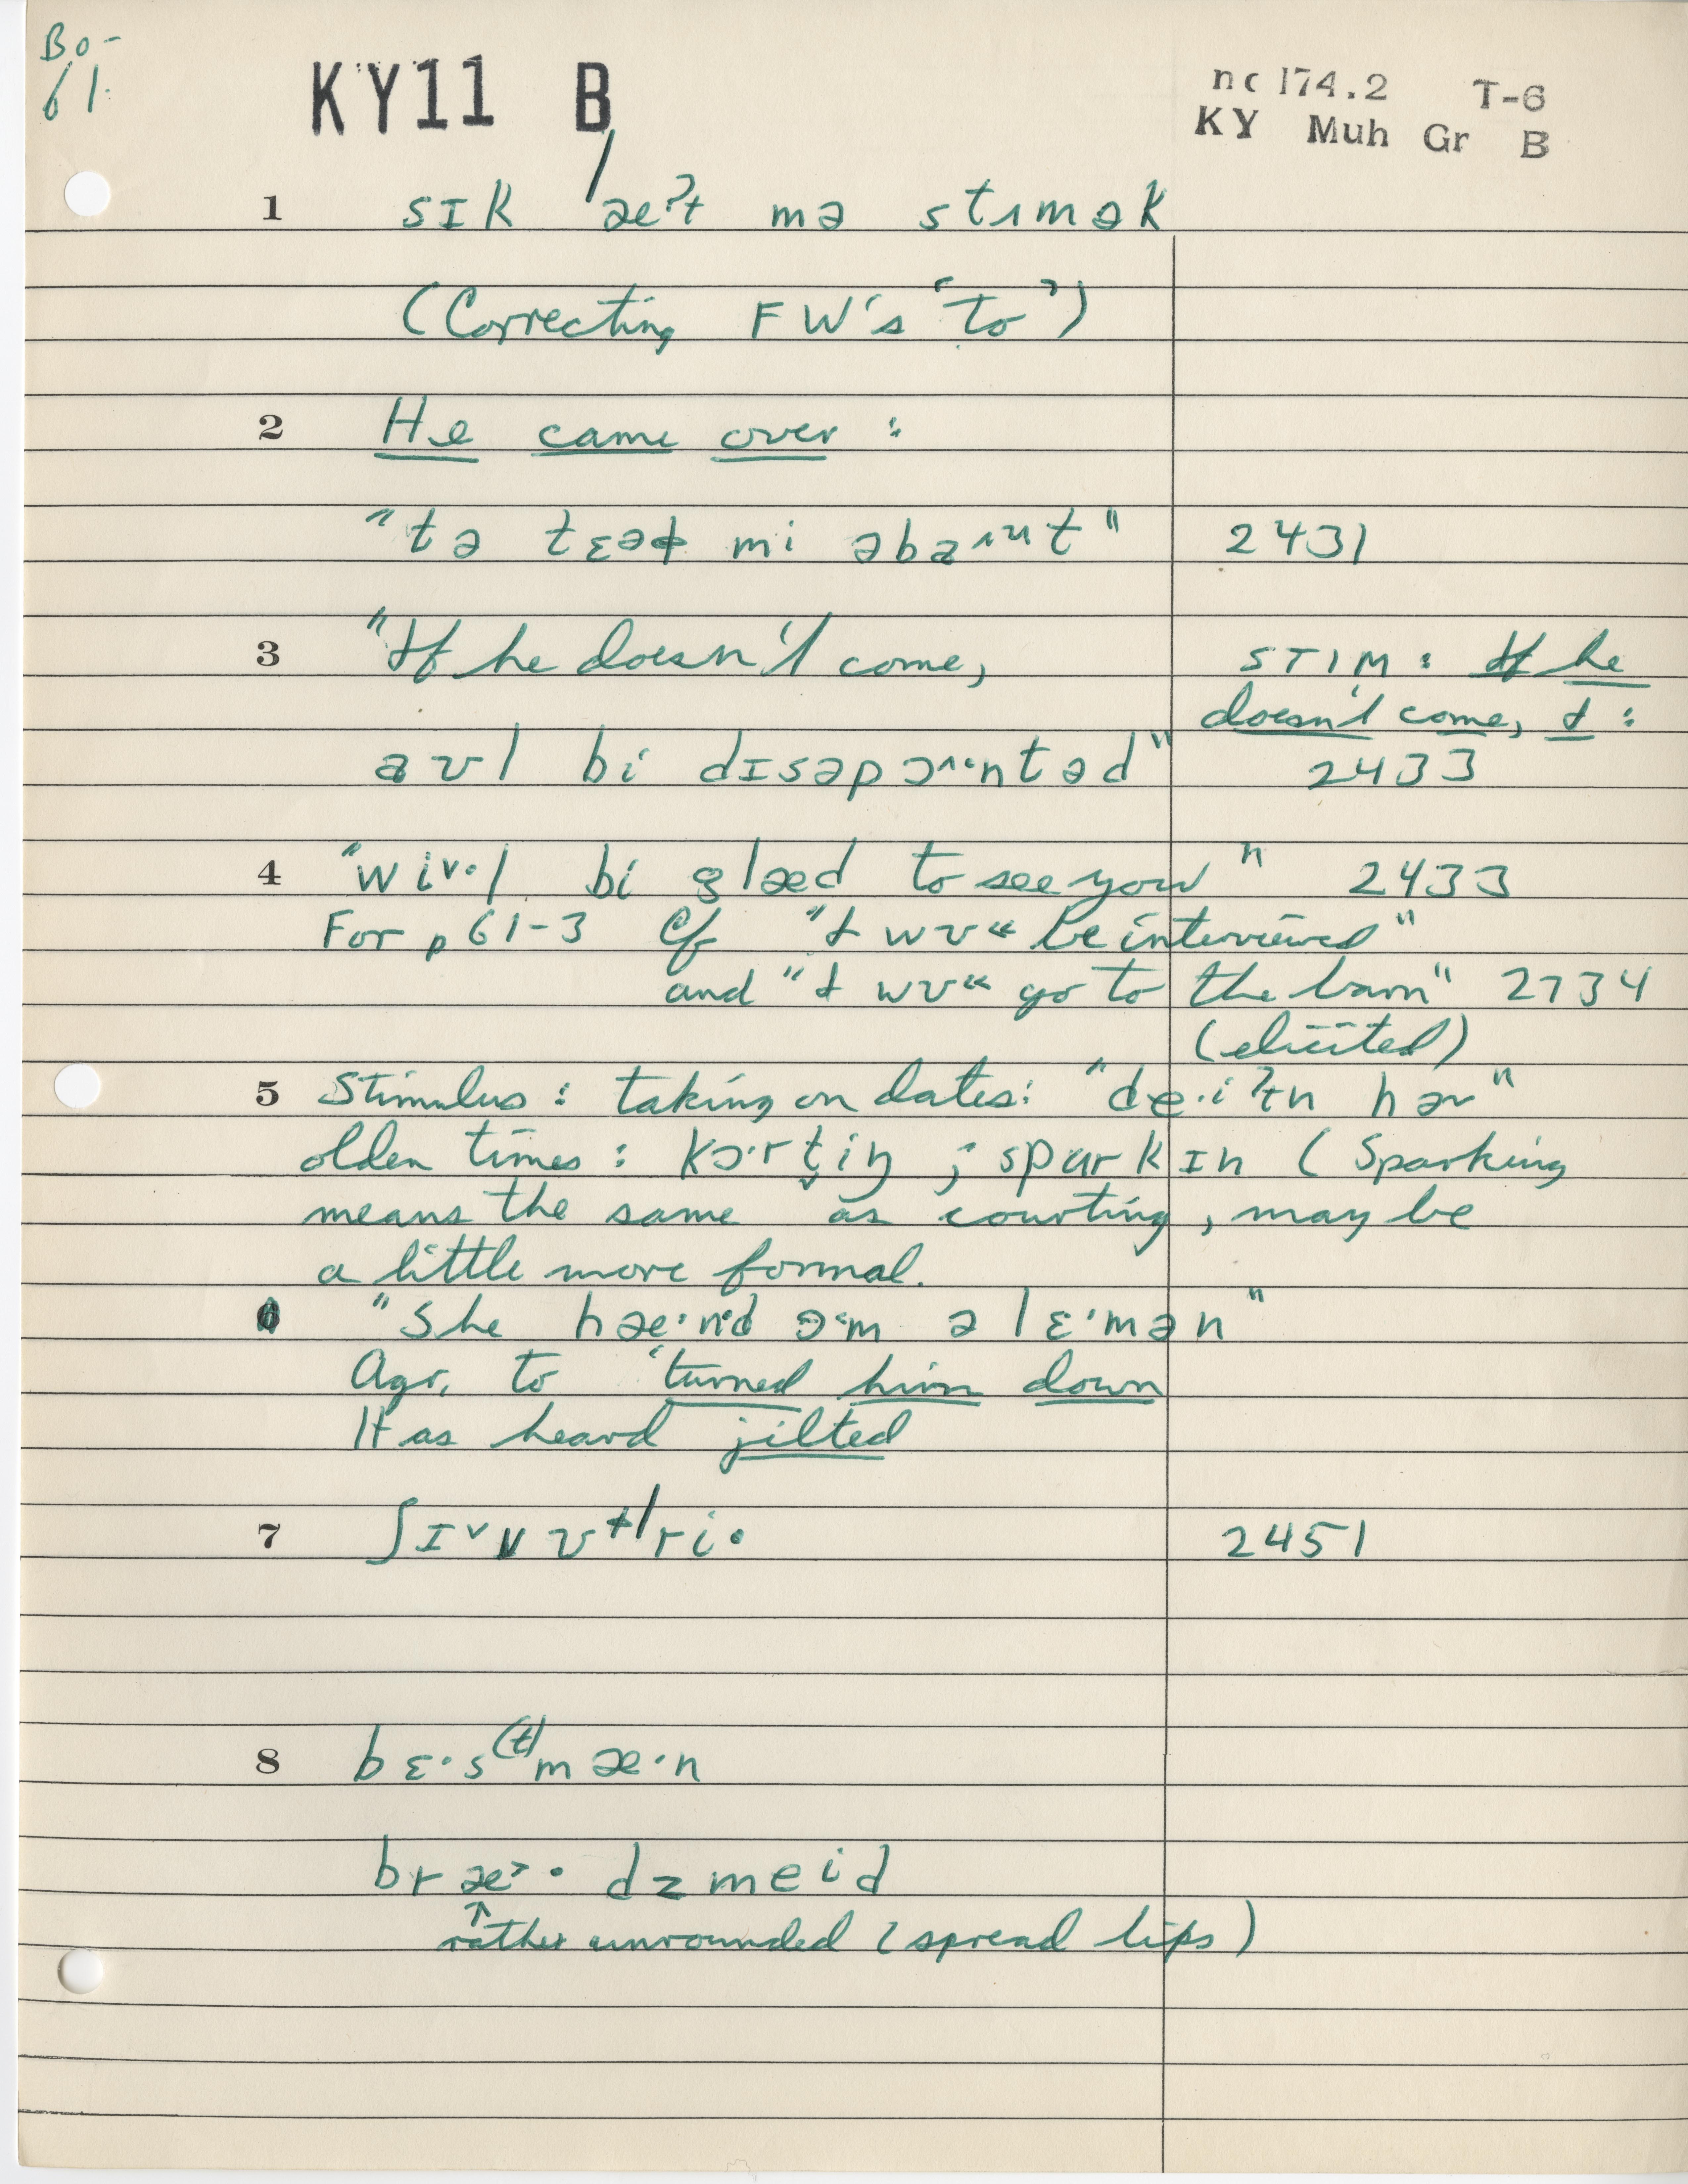 Bo-
61.
KY11 B
nc 174.2 T-6
KY Muh Gr B
1 sɪk æˀt mə stʌmək
(Correcting FW's 'to')
2 He came over :
"tə mi " 2431
3 "If he doesn't come, STIM : If he
doesn't come, I :
bi " 2433
4 " bi glæd to see you" 2433
For p 61-3 Cf "I be interviewed"
and "I go to the barn" 2734
(elicited)
5 Stimulus : taking on dates: " "
olden times : ; spɑrkɪn (Sparking
means the same as courting, may be
a little more formal.
6 "She ə "
Agr. to 'turned him down
Has heard jilted
7 2451
8 bɛ·s⁽ᵗ⁾mæ·n
bræ˃· dzmeid
↑
rather unrounded (spread lips)